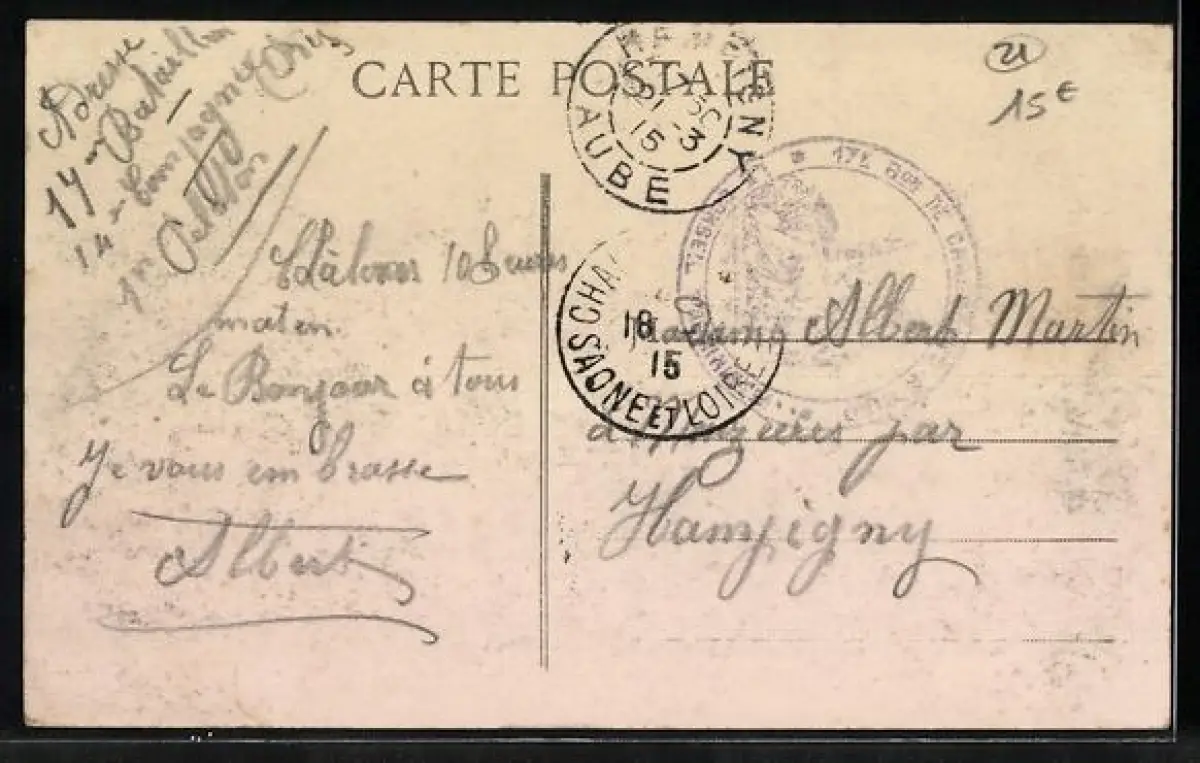 CARTE POSTALE
21
15€
Adresse
17me Bataillon
14me Compagnie
1er Peloton
10 heures
matin.
Le Bonjoar à tous
Je vous embrasse
Albert
AUBE
15 3
SAONE ET LOIRE
18
15
* 17E BON DE
Madame Albert Martin
par
Hampigny